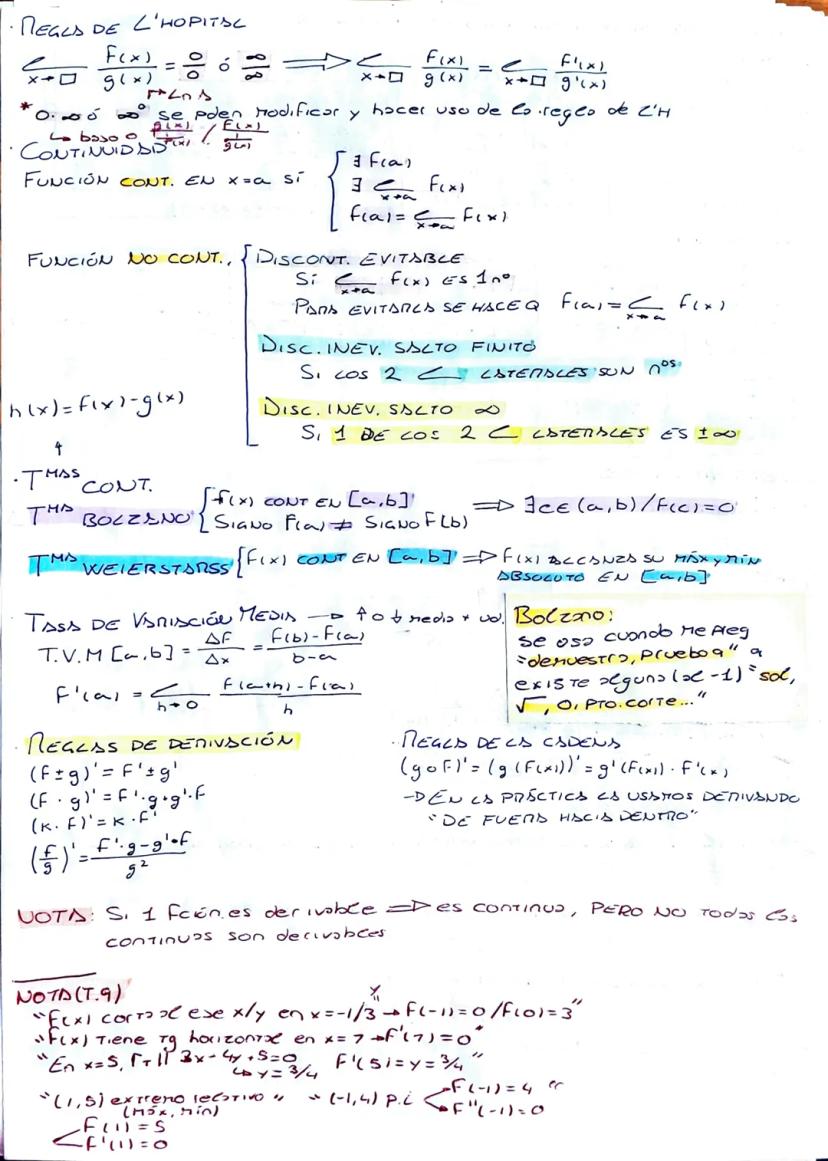 · REGLA DE L'HOPITAL
L x→□ f(x)/g(x) = 0/0 ó ∞/∞ ⟹ L x→□ f(x)/g(x) = L x→□ f'(x)/g'(x)
↱ Ln A
* 0·∞ ó ∞⁰ se poden modificar y hacer uso de la regla de L'H
↳ baso o g(x)/(1/f(x)) / f(x)/(1/g(x))
· CONTINUIDAD
FUNCIÓN CONT. EN x=a SÍ { ∃ f(a)
∃ L x→a f(x)
f(a) = L x→a f(x)
FUNCIÓN NO CONT., { DISCONT. EVITABLE
Si L x→a f(x) ES 1 nº
PARA EVITARLA SE HACE Q f(a) = L x→a f(x)
DISC. INEV. SALTO FINITO
Si LOS 2 L LATERALES SON nºs
h(x) = f(x) - g(x)
DISC. INEV. SALTO ∞
Si 1 DE LOS 2 L LATERALES ES ±∞
↑
· TMAS CONT.
TMA BOLZANO { f(x) CONT EN [a,b]
SIGNO f(a) ≠ SIGNO f(b) ⟹ ∃ c ∈ (a,b) / f(c)=0
TMA WEIERSTARSS { f(x) CONT EN [a,b] ⟹ f(x) ALCANZA SU MÁX y MÍN
ABSOLUTO EN [a,b]
· TASA DE VARIACIÓN MEDIA → ↑ o ↓ medio x ud.
T.V.M [a,b] = Δf/Δx = (f(b) - f(a))/(b-a)
f'(a) = L h→0 (f(a+h) - f(a))/h
Bolzano:
se usa cuando me preg
"demuestra, prueba q" q
existe alguna (al -1) "sol,
√, 0, pto. corte..."
· REGLAS DE DERIVACIÓN
(f ± g)' = f' ± g'
(f · g)' = f'·g + g'·f
(k · f)' = k · f'
(f/g)' = (f'·g - g'·f)/g²
· REGLA DE LA CADENA
(g o f)' = (g (f(x)))' = g'(f(x)) · f'(x)
→ EN LA PRÁCTICA LA USAMOS DERIVANDO
"DE FUERA HACIA DENTRO"
NOTA: Si 1 fción es derivable ⟹ es continua, PERO NO Todas las
continuas son derivables
NOTA (T.9)
"f(x) corta al eje x/y en x=-1/3 → f(-1)=0 / f(0)=3"
"f(x) Tiene Tg horizontal en x=7 → f'(7)=0"
"En x=5, rT || 3x-4y+5=0 f'(5)=y=3/4"
↳ y=3/4
"(1,5) extremo relativo" "(-1,4) p.i < f(-1)=4 "
(máx, mín) f''(-1)=0
< f(1)=5
f'(1)=0